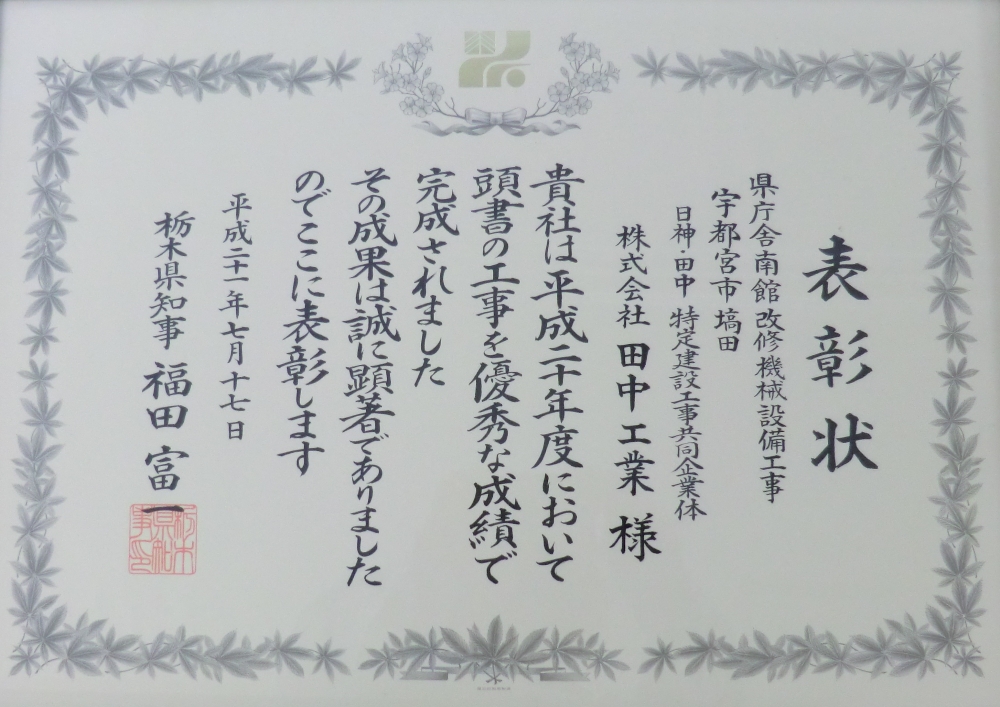 表彰状
県庁舎南館改修機械設備工事
宇都宮市塙田
日神・田中特定建設工事共同企業体
株式会社 田中工業 様
貴社は平成二十年度において
頭書の工事を優秀な成績で
完成されました
その成果は誠に顕著でありました
のでここに表彰します
平成二十一年七月十七日
栃木県知事 福田富一
栃木県知事印